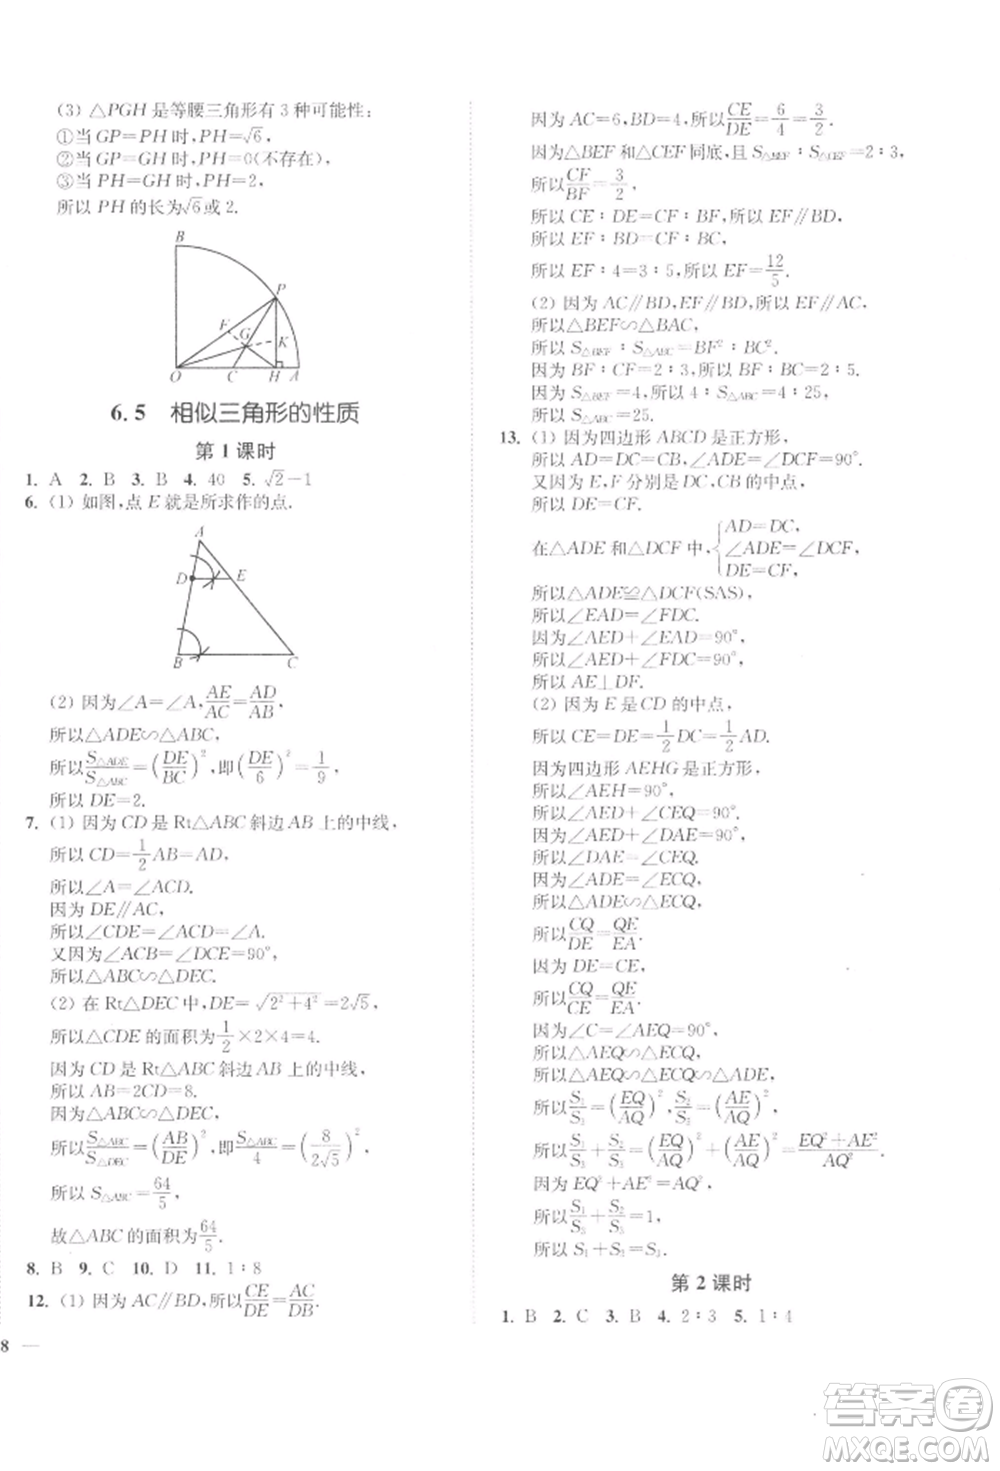 (3) △PGH 是等腰三角形有 3 种可能性:
①当 GP=PH 时,PH=√6,
②当 GP=GH 时,PH=0(不存在),
③当 PH=GH 时,PH=2,
所以 PH 的长为√6或 2.
B
P
F
G
K
O
C
H
A
6.5 相似三角形的性质
第 1 课时
1. A 2. B 3. B 4. 40 5. √2-1
6. (1) 如图,点 E 就是所求作的点.
A
D
E
B
C
(2) 因为∠A=∠A,AE/AC=AD/AB,
所以△ADE∽△ABC.
所以S△ADE/S△ABC=(DE/BC)²,即(DE/6)²=1/9,
所以 DE=2.
7. (1) 因为 CD 是 Rt△ABC 斜边 AB 上的中线,
所以 CD=1/2AB=AD,
所以∠A=∠ACD.
因为 DE∥AC,
所以∠CDE=∠ACD=∠A.
又因为∠ACB=∠DCE=90°,
所以△ABC∽△DEC.
(2) 在 Rt△DEC 中,DE=√(2²+4²)=2√5,
所以△CDE 的面积为1/2×2×4=4.
因为 CD 是 Rt△ABC 斜边 AB 上的中线,
所以 AB=2CD=8.
因为△ABC∽△DEC,
所以S△ABC/S△DEC=(AB/DE)²,S△ABC/4=(8/2√5)²,
所以 S△ABC=64/5,
故△ABC 的面积为64/5.
8. B 9. C 10. D 11. 1∶8
12. (1) 因为 AC∥BD,所以CE/DE=AC/DB.
8
因为 AC=6,BD=4,所以CE/DE=6/4=3/2.
因为△BEF 和△CEF 同底,且 S△BEF∶S△CEF=2∶3,
所以CF/BF=3/2,
所以 CE∶DE=CF∶BF,所以 EF∥BD,
所以 EF∶BD=CF∶BC,
所以 EF∶4=3∶5,所以 EF=12/5.
(2) 因为 AC∥BD,EF∥BD,所以 EF∥AC.
所以△BEF∽△BAC,
所以 S△BEF∶S△ABC=BF²∶BC².
因为 BF∶CF=2∶3,所以 BF∶BC=2∶5.
因为 S△BEF=4,所以 4∶S△ABC=4∶25,
所以 S△ABC=25.
13. (1) 因为四边形 ABCD 是正方形,
所以 AD=DC=CB,∠ADC=∠DCB=90°.
又因为 E,F 分别是 DC,CB 的中点,
所以 DE=CF.
在△ADE 和△DCF 中,{AD=DC, ∠ADE=∠DCF, DE=CF,
所以△ADE≌△DCF(SAS),
所以∠EAD=∠FDC.
因为∠AED+∠EAD=90°,
所以∠AED+∠FDC=90°,
所以 AE⊥DF.
(2) 因为 E 是 CD 的中点,
所以 CE=DE=1/2DC=1/2AD.
因为四边形 AEHG 是正方形,
所以∠AEH=90°,
所以∠AED+∠CEQ=90°,
因为∠AED+∠DAE=90°,
所以∠DAE=∠CEQ.
所以△ADE∽△ECQ,
所以CQ/DE=QE/EA.
因为 DE=CE,
所以CQ/CE=QE/EA.
因为∠C=∠AEQ=90°,
所以△AEQ∽△ECQ,
所以△AEQ∽△ECQ∽△ADE,
所以S₁/S₃=(EQ/AQ)²,S₂/S₃=(AE/AQ)²,
所以S₁/S₃+S₂/S₃=(EQ/AQ)²+(AE/AQ)²=(EQ²+AE²)/AQ².
因为 EQ²+AE²=AQ²,
所以S₁/S₃+S₂/S₃=1,
所以 S₁+S₂=S₃.
第 2 课时
1. B 2. C 3. B 4. 2∶3 5. 1∶4
答案卷
MXQE.COM